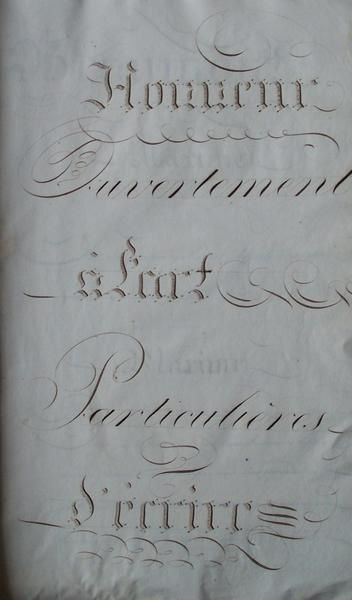 Honneur
Ouvertement
à l'art
Particulières
d'écrire